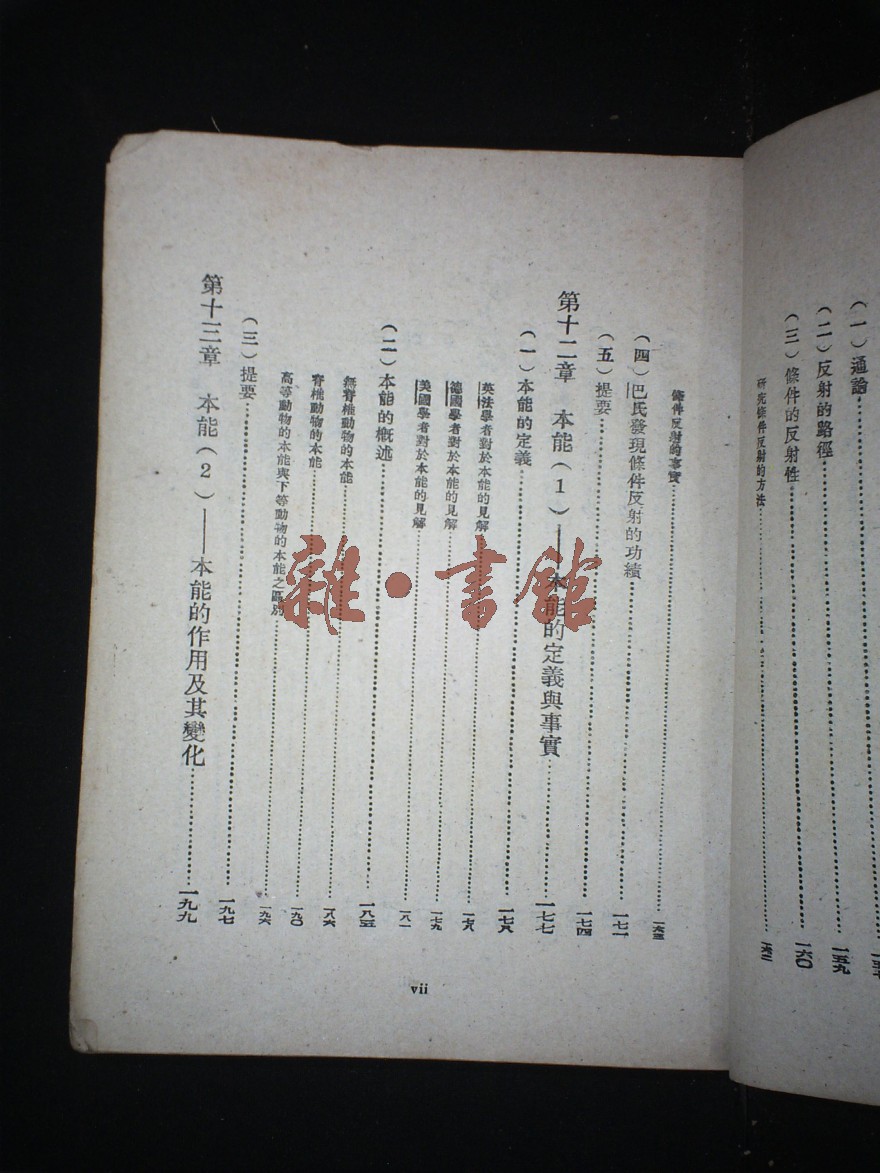 (一)通論
(二)反射的路徑……一五九
(三)條件的反射性……一六〇
研究條件反射的方法……一六二
條件反射的事實……一六三
(四)巴氏發現條件反射的功績……一七一
(五)提要……一七四
第十二章 本能(1)——本能的定義與事實……一七七
(一)本能的定義……一七八
英法學者對於本能的見解……一七八
德國學者對於本能的見解……一七九
美國學者對於本能的見解……一八一
(二)本能的概述……一八五
無脊椎動物的本能……一八六
脊椎動物的本能……一九〇
高等動物的本能與下等動物的本能之區別……一九六
(三)提要……一九七
第十三章 本能(2)——本能的作用及其變化……一九九
vii
雜·書館